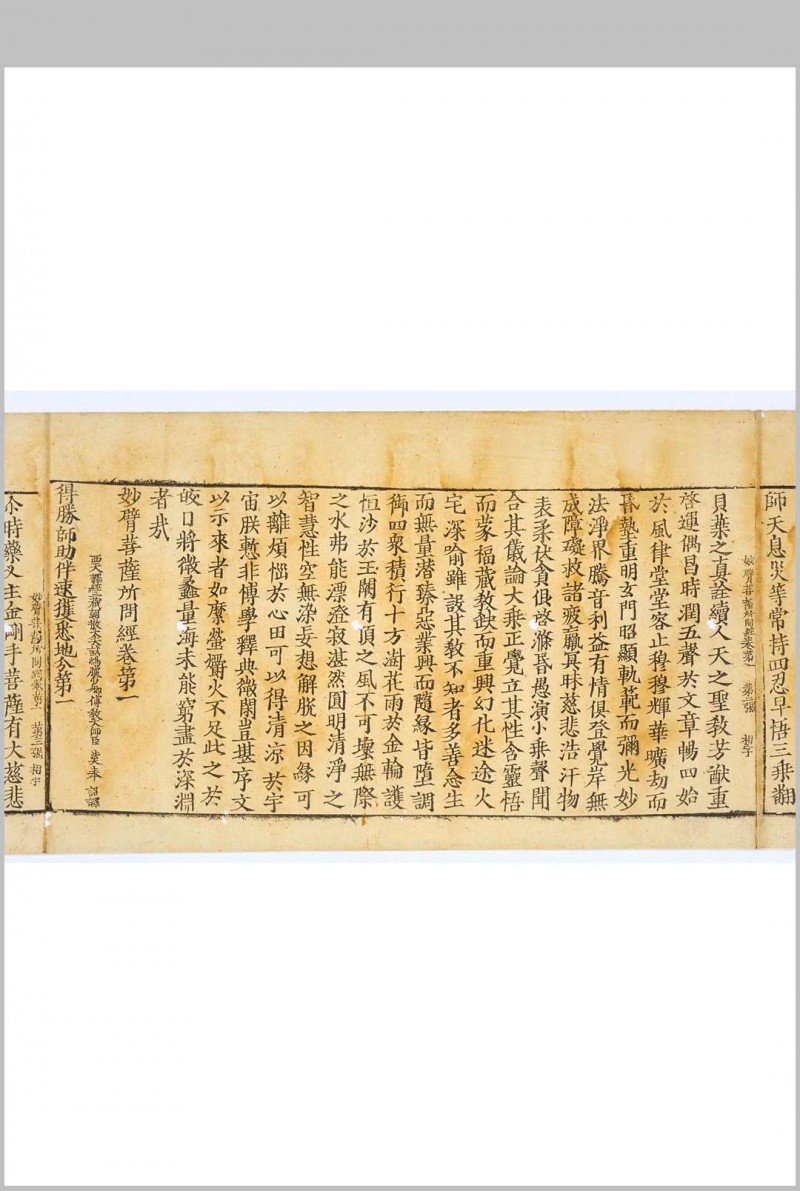 師天息災等常持四忍早悟三乘翻
妙臂菩薩所問經卷第一 第二張 相字
貝葉之真詮續人天之聖教芳猷重
啓運偶昌時潤五聲於文章暢四始
於風律堂堂容止穆穆輝華曠劫而
昏蟄重明玄門昭顯軌範而彌光妙
法淨界騰音利益有情俱登覺岸無
成障礙救諸疲羸冥昧慈悲浩汗物
表柔伏貪佷啓滌昏愚演小乘聲聞
合其儀論大乘正覺立其性含靈悟
而蒙福藏教缺而重興幻化迷途火
宅深喻雖設其教不知者多善念生
而無量潛臻惡業興而隨緣皆墮調
御四衆積行十方澍花雨於金輪護
恒沙於玉闕有頂之風不可壞無際
之水弗能漂澄寂湛然圓明清淨之
智慧性空無染妄想解脫之因緣可
以離煩惱於心田可以得清涼於宇
宙朕慙非博學釋典微閑豈堪序文
以示來者如縻螢爝火不足此之於
皎日將微蠡量海未能窮盡於深淵
者哉
妙臂菩薩所問經卷第一
西天譯經三藏朝散大夫試鴻臚少卿傳教大師臣 法天奉 詔譯
得勝師助伴速獲悉地分第一
妙臂菩薩所問經卷第一 第三張 相字
尒時藥叉主金剛手菩薩有大慈悲